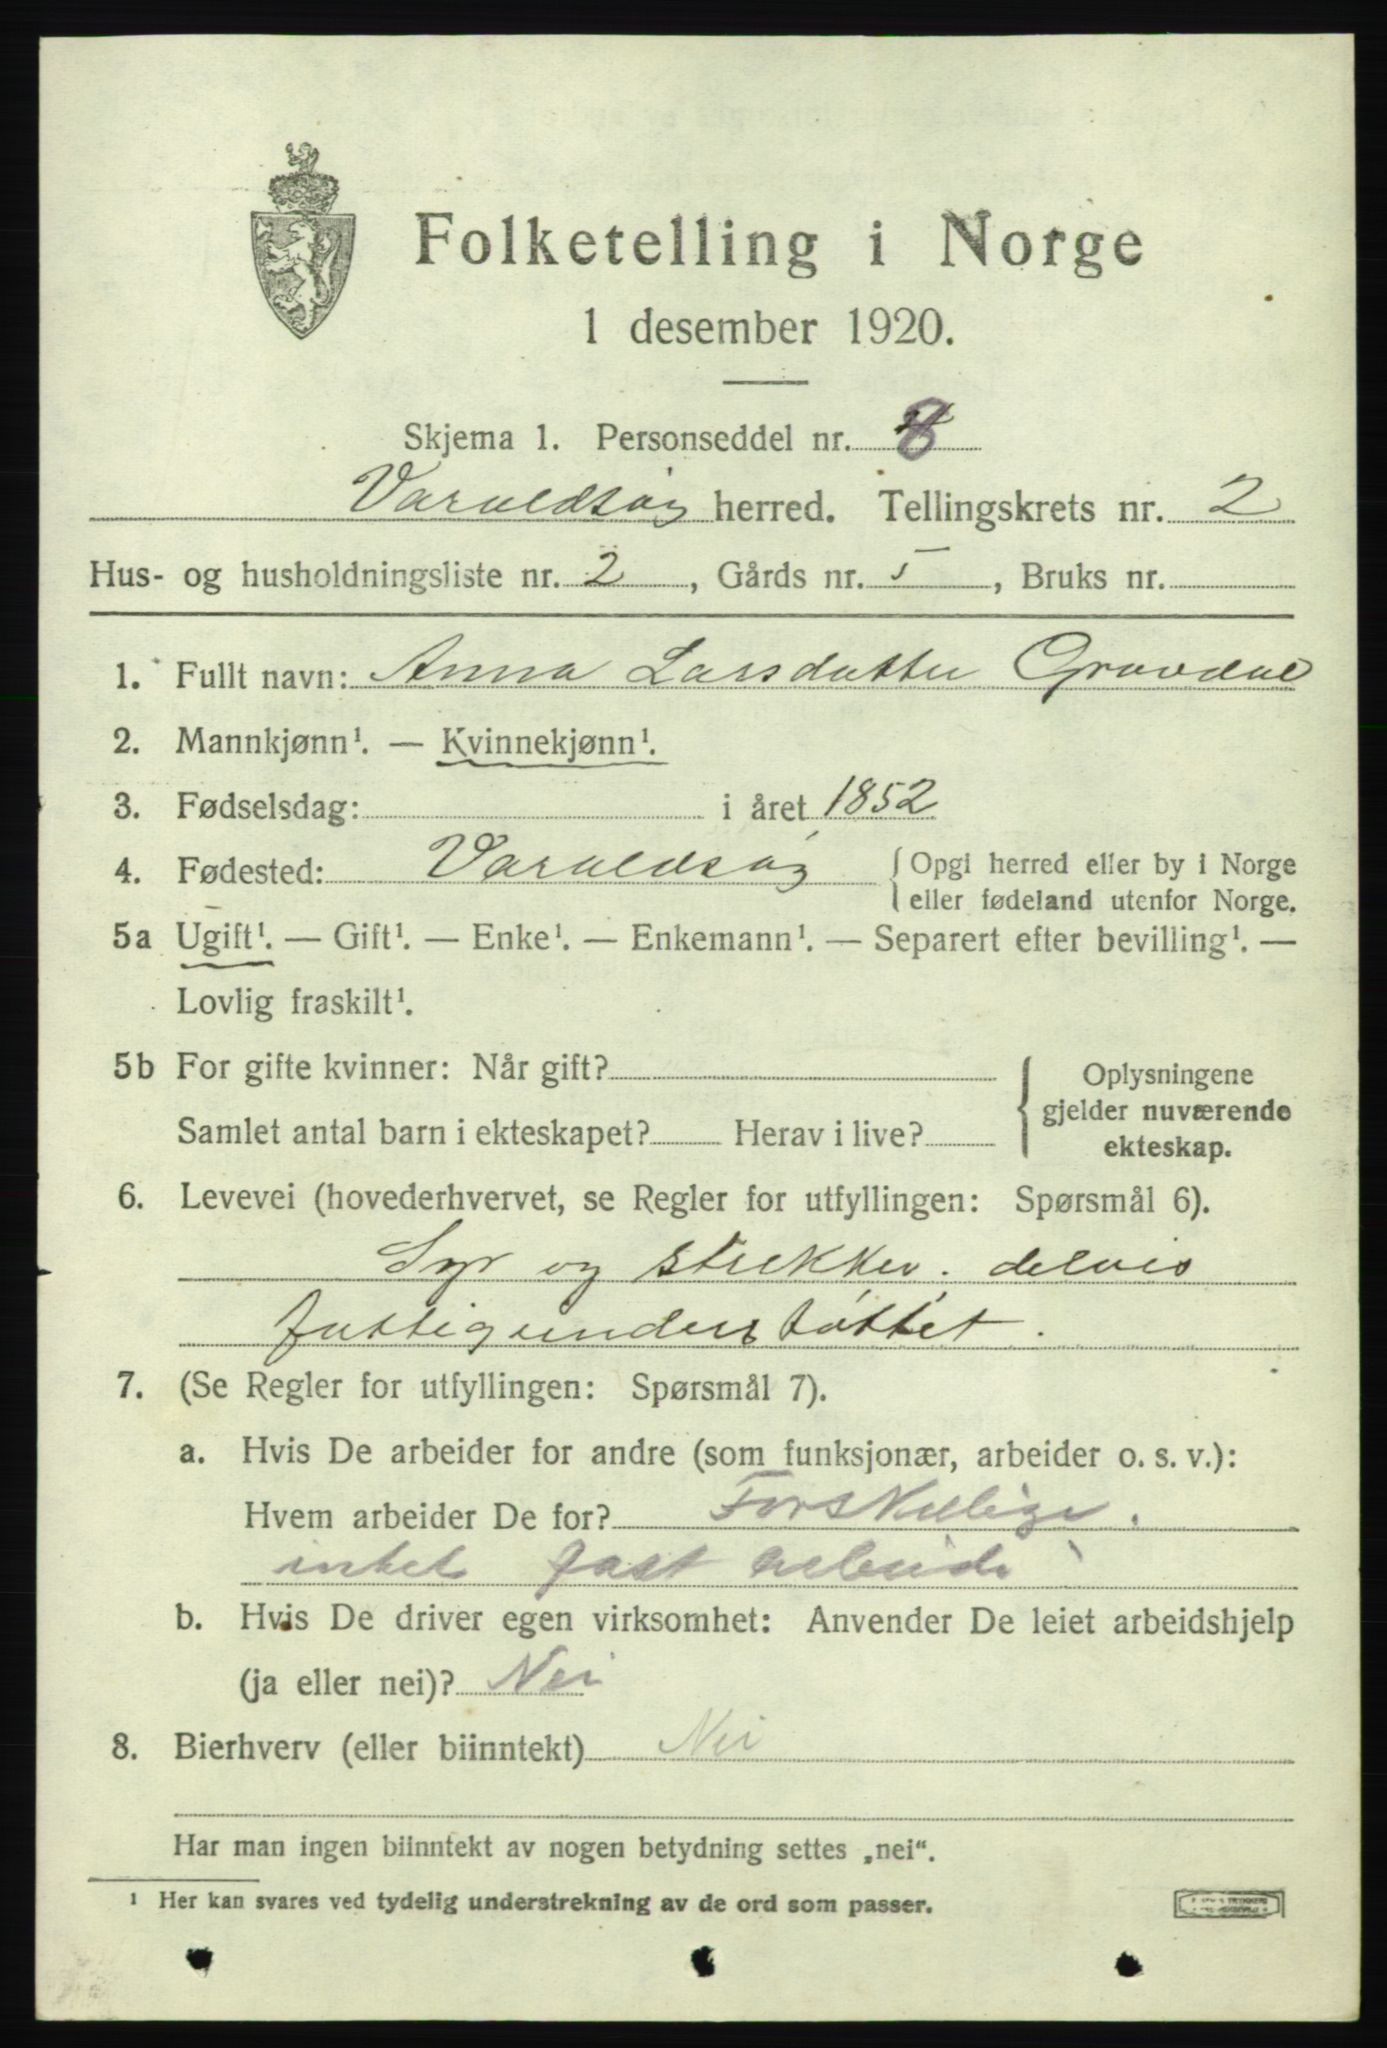 Folketelling i Norge
1 desember 1920.
Skjema 1. Personseddel nr. 8
Varaldsøy herred. Tellingskrets nr. 2
Hus- og husholdningsliste nr. 2, Gårds nr. , Bruks nr.
1. Fullt navn: Anna Larsdatter Gravdal
2. Mannkjønn¹. — Kvinnekjønn¹.
3. Fødselsdag: i året 1852
4. Fødested: Varaldsøy { Opgi herred eller by i Norge
eller fødeland utenfor Norge.
5a Ugift¹. — Gift¹. — Enke¹. — Enkemann¹. — Separert efter bevilling¹. —
Lovlig fraskilt¹.
5b For gifte kvinner: Når gift? Oplysningene
gjelder nuværende
Samlet antal barn i ekteskapet? Herav i live? ekteskap.
6. Levevei (hovederhvervet, se Regler for utfyllingen: Spørsmål 6).
Syr og strikker. delvis
fattigunderstøttet.
7. (Se Regler for utfyllingen: Spørsmål 7).
a. Hvis De arbeider for andre (som funksjonær, arbeider o. s. v.):
Hvem arbeider De for? Forskellige.
intet fast arbeide
b. Hvis De driver egen virksomhet: Anvender De leiet arbeidshjelp
(ja eller nei)? Nei
8. Bierhverv (eller biinntekt) Nei
Har man ingen biinntekt av nogen betydning settes „nei“.
¹ Her kan svares ved tydelig understrekning av de ord som passer.